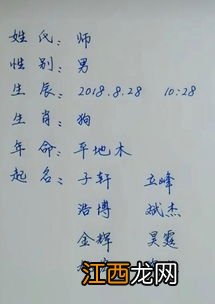 姓氏：师
性别：男
生辰：2018.8.28 10:28
生肖：狗
年命：平地木
起名：子轩 立峰
浩博 斌杰
金辉 昊霆
江西龙网